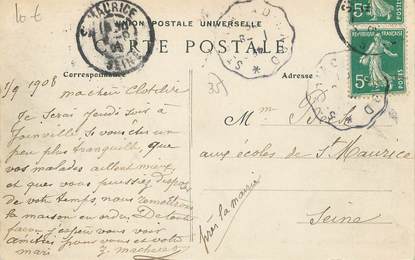 10 €
UNION POSTALE UNIVERSELLE
CARTE POSTALE
Correspondance
Adresse
ST MAURICE
SEINE
REPUBLIQUE FRANÇAISE
5c
5c
35
5/9 1908
ma chère Clotilde
Je serai jeudi soir à
Joinville si vous êtes un
peu plus tranquille que
vos malades aillent mieux
et que vous puissiez disposer
de votre temps, nous remettrons
la maison en ordre De toute
façon j'espère vous voir
amitiés pour vous et votre
mari
Mme
aux écoles de St Maurice
Seine
près la mairie